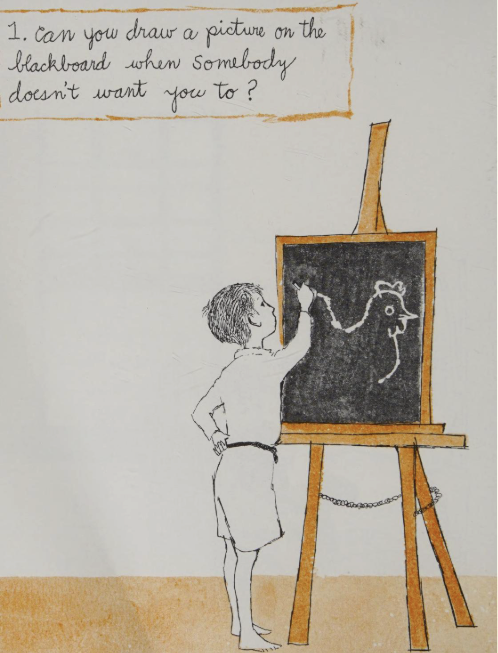 1. Can you draw a picture on the
blackboard when somebody
doesn't want you to?